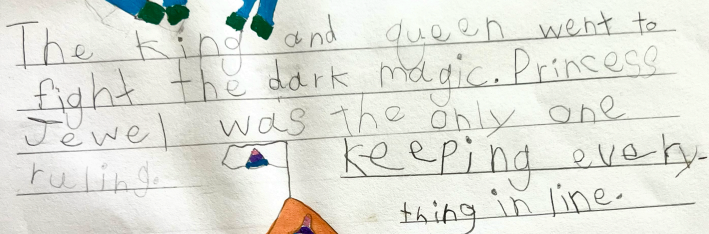 The King and queen went to
fight the dark magic. Princess
Jewel was the only one
ruling.
keeping every-
thing in line.